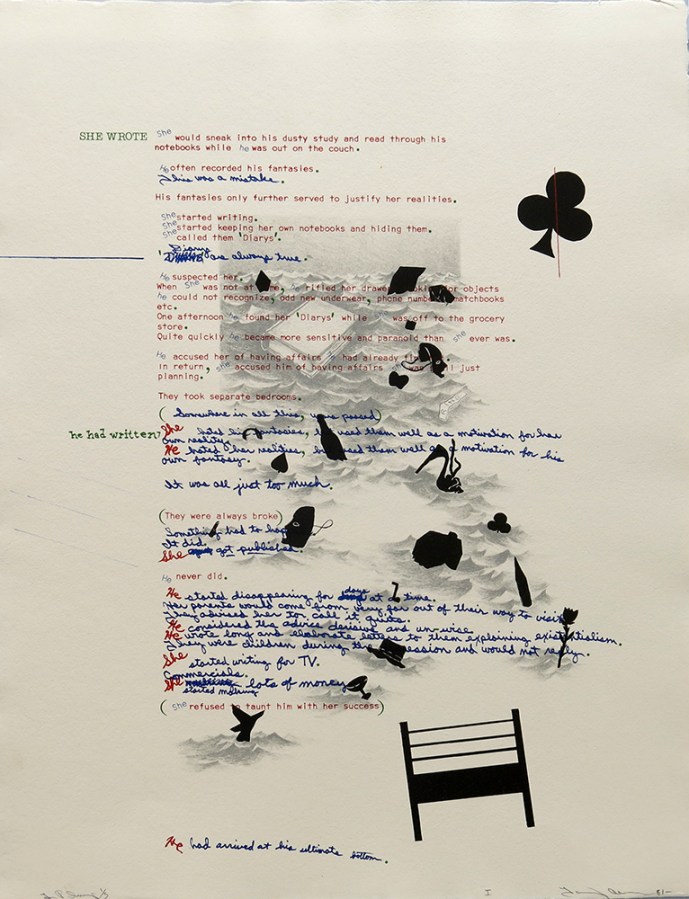 SHE WROTE She would sneak into his dusty study and read through his
notebooks while he was out on the couch.
He often recorded his fantasies.
This was a mistake.
His fantasies only further served to justify her realities.
She started writing.
She started keeping her own notebooks and hiding them.
She called them 'Diarys'.
'Diarys are always true.
He suspected her.
When She was not at me, he rifled her drawe for objects
he could not recognize, odd new underwear, phone numb matchbooks
etc.
One afternoon he found her 'Diarys' while was off to the grocery
store.
Quite quickly he became more sensitive and paranoid than she ever was.
He accused her of having affairs had already
in return, she accused him of having affairs she was just
planning.
They took separate bedrooms.
( Somewhere in all this, were passed)
he had written? She hated his fantasies, used them well as a motivation for her
own reality.
He hated her realities, used them well as a motivation for his
own fantasy.
It was all just too much.
(They were always broke)
Something had to
It did.
She got published.
He never did.
He started disappearing for days at a time.
Her parents would come from very far out of their way to visit
They advised her to call it quits.
He considered the advice decisive and un-wise.
He wrote long and elaborate letters to them explaining existentialism.
They were children during the and would not
She started writing for TV.
Commercials.
She lots of money
started making
( She refused to taunt him with her success)
He had arrived at his ultimate bottom.
I 81-